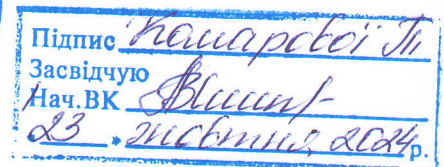 Підпис Комарової Т
Засвідчую
Нач.ВК
23 » жовтня 2024р.